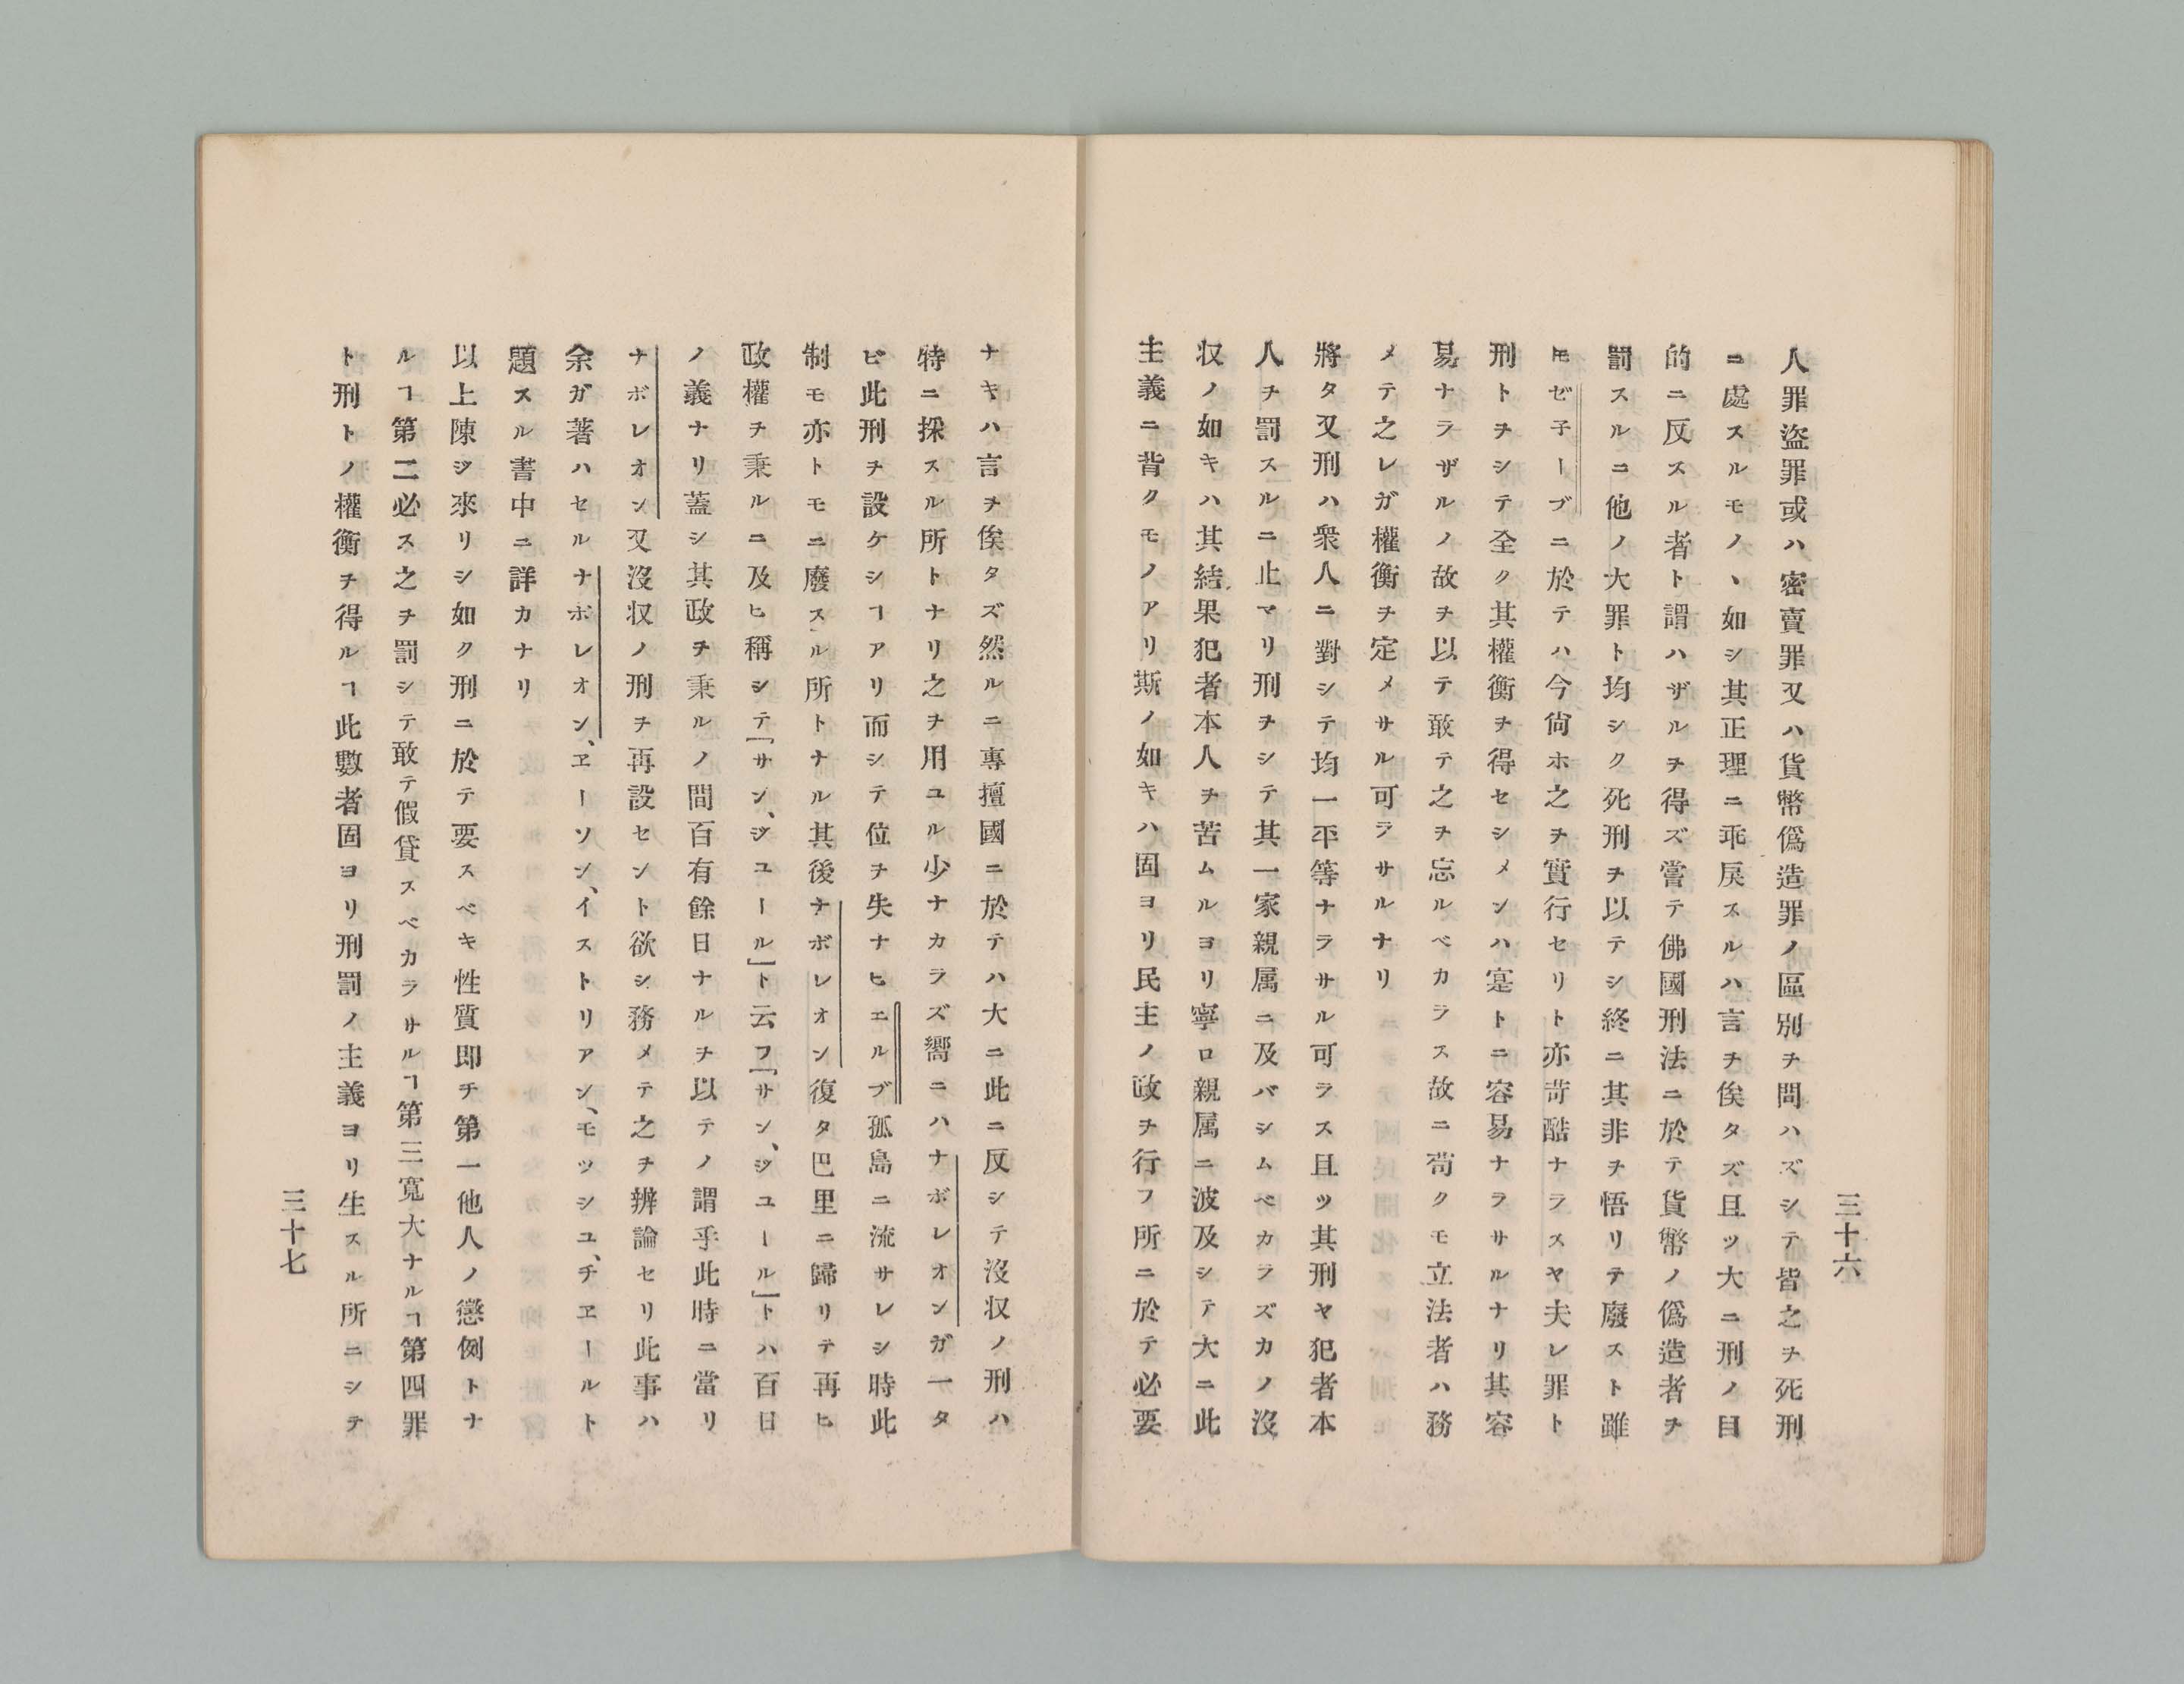 人罪盜罪或ハ密賣罪又ハ貨幣僞造罪ノ區別ヲ問ハズシテ皆之ヲ死刑
ニ處スルモノヽ如シ其正理ニ乖戻スルハ言ヲ俟タズ且ツ大ニ刑ノ目
的ニ反スル者ト謂ハザルヲ得ズ嘗テ佛國刑法ニ於テ貨幣ノ僞造者ヲ
罰スルニ他ノ大罪ト均シク死刑ヲ以テシ終ニ其非ヲ悟リテ廢スト雖
𪜈ゼ子ーブニ於テハ今尙ホ之ヲ實行セリト亦苛酷ナラスヤ夫レ罪ト
刑トヲシテ全ク其權衡ヲ得セシメンハ寔トニ容易ナラサルナリ其容
易ナラザルノ故ヲ以テ敢テ之ヲ忘ルベカラス故ニ苟クモ立法者ハ務
メテ之レガ權衡ヲ定メサル可ラサルナリ
將タ又刑ハ衆人ニ對シテ均一平等ナラサル可ラス且ツ其刑ヤ犯者本
人ヲ罰スルニ止マリ刑ヲシテ其一家親属ニ及バシムベカラズカノ沒
収ノ如キハ其結果犯者本人ヲ苦ムルヨリ寧ロ親属ニ波及シテ大ニ此
主義ニ背クモノアリ斯ノ如キハ固ヨリ民主ノ政ヲ行フ所ニ於テ必要
三十六
ナキハ言ヲ俟タズ然ルニ專擅國ニ於テハ大ニ此ニ反シテ沒収ノ刑ハ
特ニ採スル所トナリ之ヲ用ユル少ナカラズ嚮ニハナボレオンガ一タ
ビ此刑ヲ設ケシヿアリ而シテ位ヲ失ナヒエルブ孤島ニ流サレシ時此
制モ亦トモニ廢スル所トナル其後ナボレオン復タ巴里ニ歸リテ再ヒ
政權ヲ秉ルニ及ヒ稱シテ「サン、ジユール」ト云フ「サン、ジユール」トハ百日
ノ義ナリ蓋シ其政ヲ秉ルノ間百有餘日ナルヲ以テノ謂乎此時ニ當リ
ナボレオン又沒収ノ刑ヲ再設セント欲シ務メテ之ヲ辨論セリ此事ハ
余ガ著ハセルナボレオン、ヱーソン、イストリアン、モツシユ、チヱールト
題スル書中ニ詳カナリ
以上陳ジ來リシ如ク刑ニ於テ要スベキ性質即チ第一他人ノ懲例トナ
ルヿ第二必ス之ヲ罰シテ敢テ假貸スベカラサルヿ第三寬大ナルヿ第四罪
ト刑トノ權衡ヲ得ルヿ此數者固ヨリ刑罰ノ主義ヨリ生スル所ニシテ
三十七